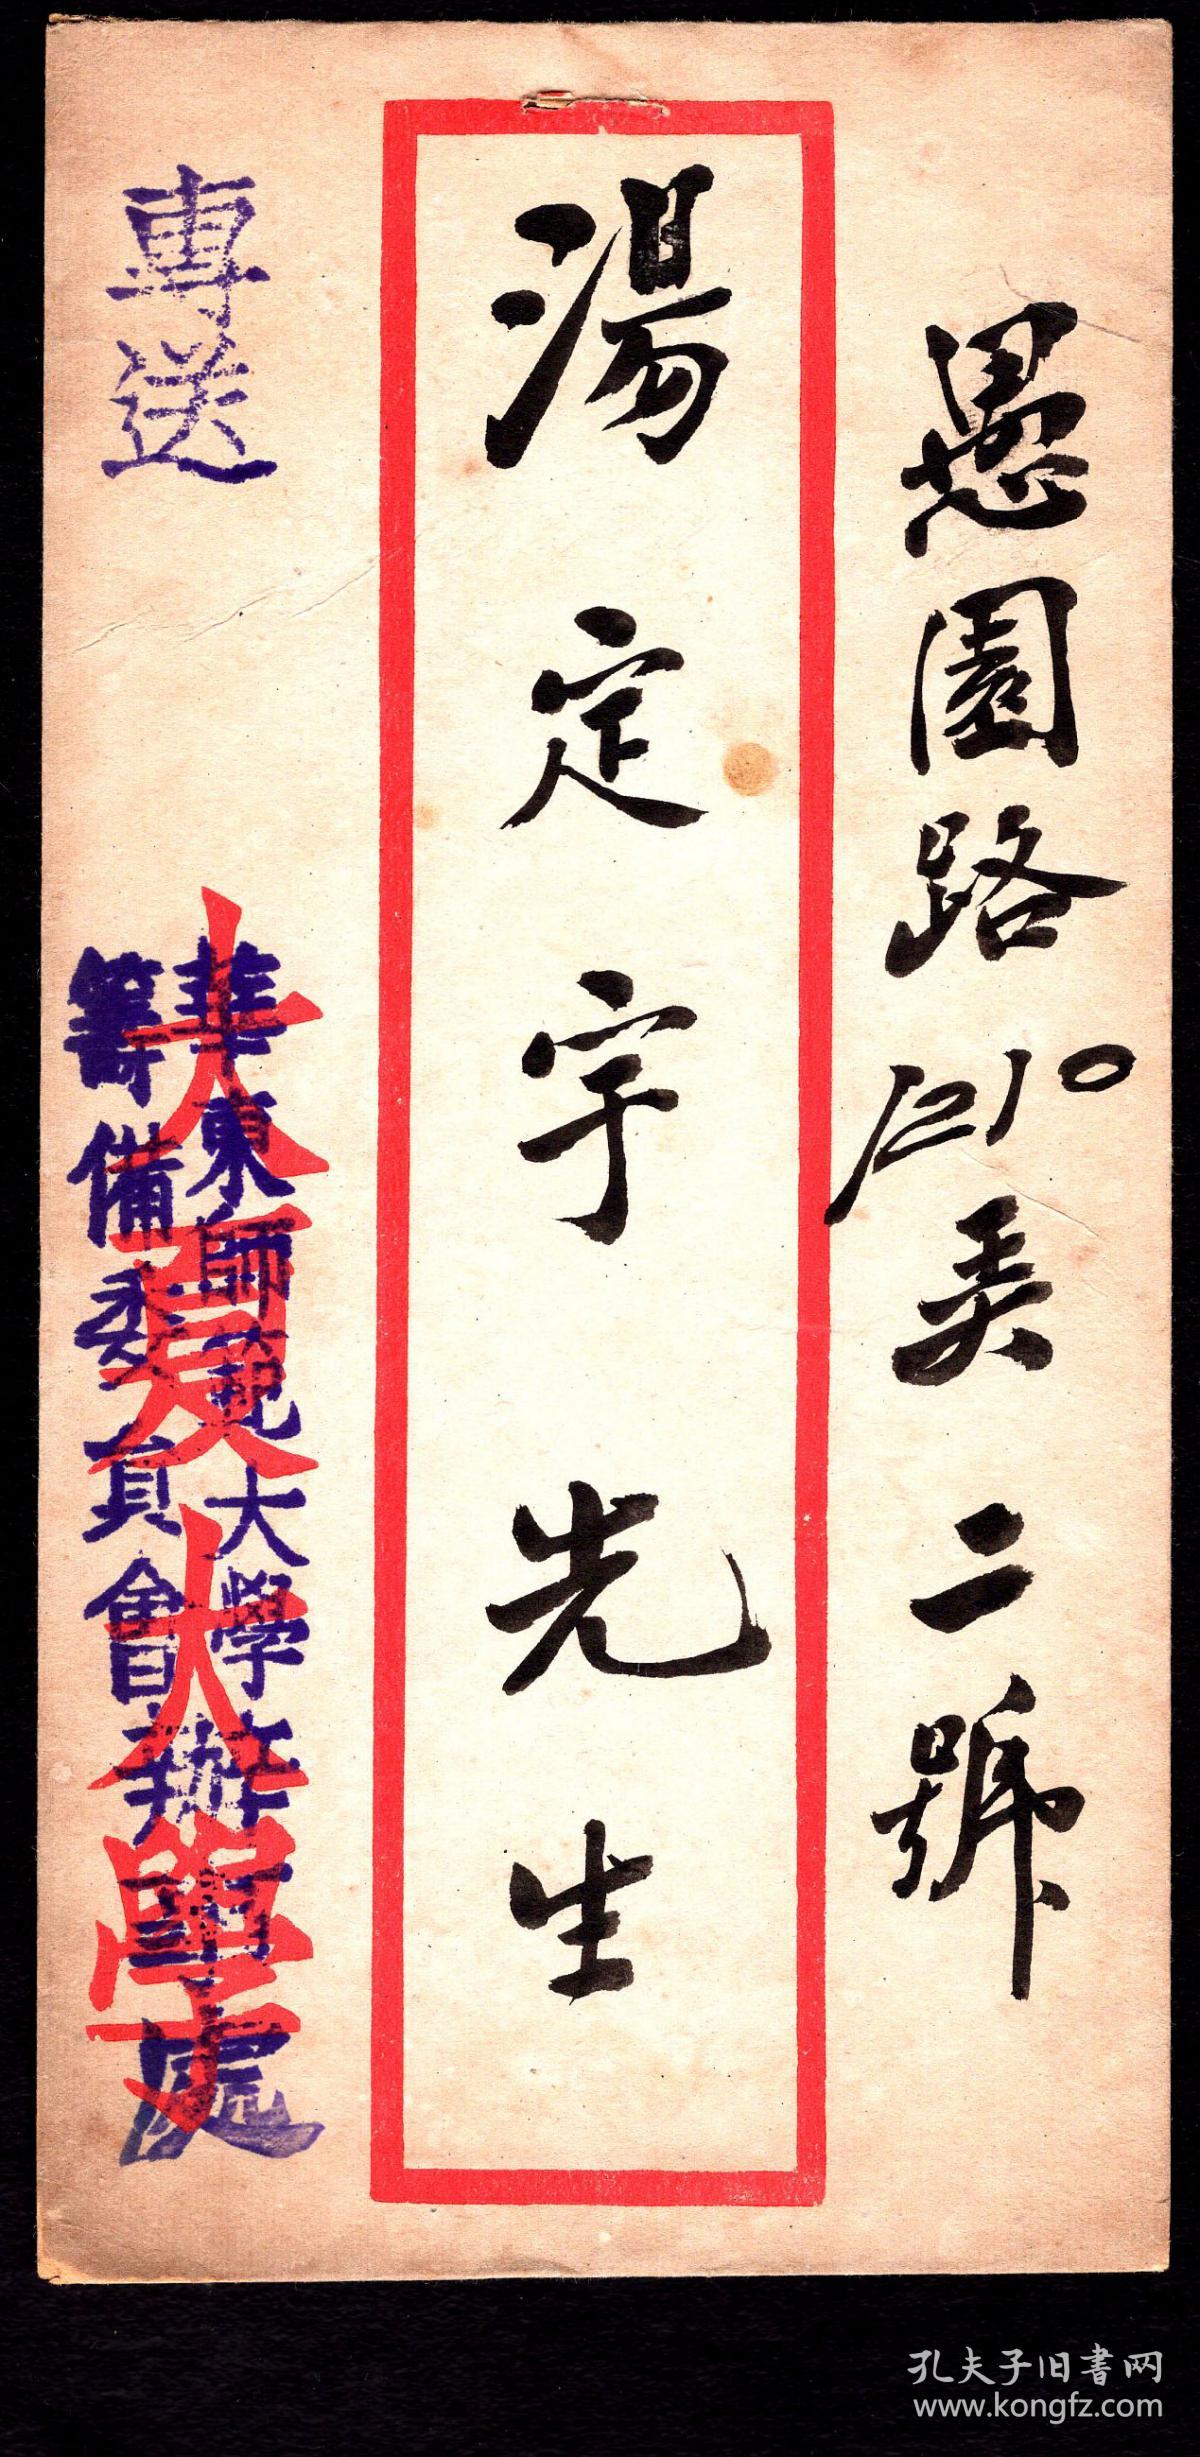 愚園路1210弄二號
湯定宇先生
專送
大夏大學
華東師範大學
籌備委員會辦事處
孔夫子旧書网
www.kongfz.com